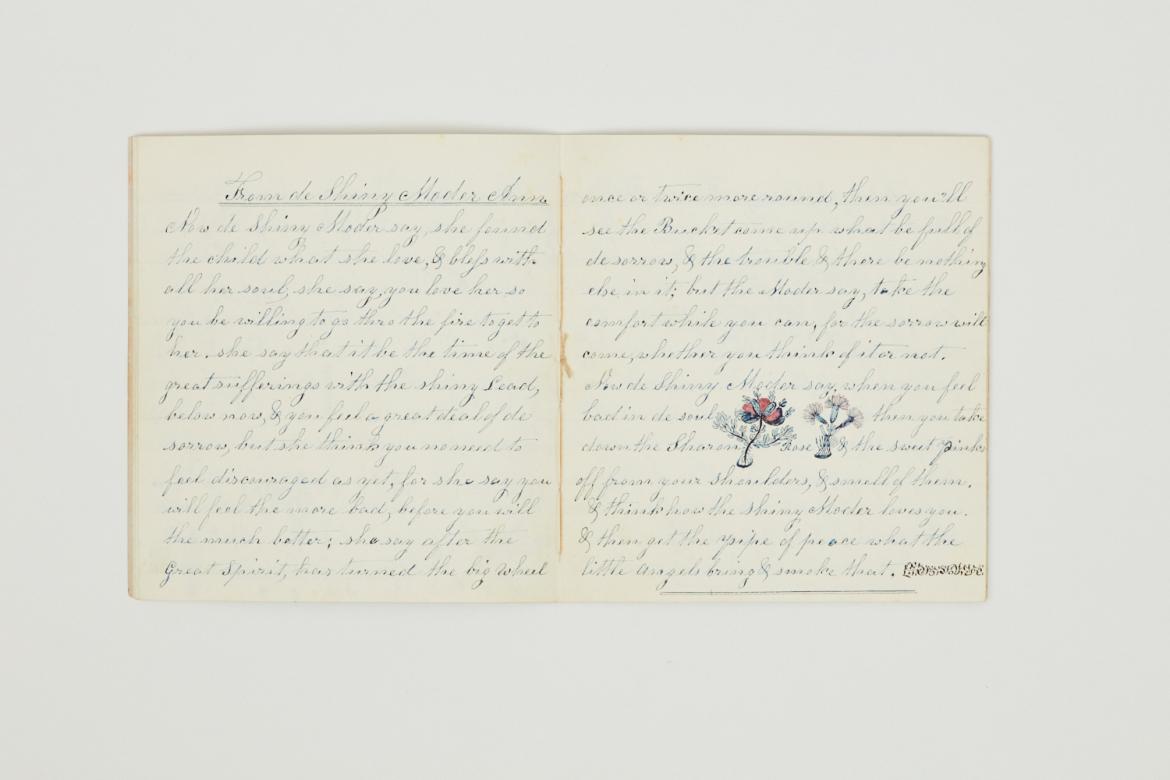 From de Shiny Moder Ann
Now de Shiny Moder say, she found
the child what she love, & bless with
all her soul, she say, you love her so
you be willing to go thro the fire to get to
her. she say that it be the time of the
great sufferings with the shiny Lead,
below now, & you feel a great deal of de
sorrow, but she think you no need to
feel discouraged as yet, for she say you
will feel the more bad, before you will
the much better; she say after the
Great Spirit, has turned the big wheel
once or twice more round, then you'll
see the Bucket come up what be full of
de sorrow, & the trouble & there be nothing
else in it; but the Moder say, take the
comfort while you can, for the sorrow will
come, whether you think of it or not.
Now de Shiny Moder say, when you feel
bad in de soul then you take
down the Sharon Rose & the sweet pinks
off from your shoulders, & smell of them.
& think how the shiny Moder loves you.
& then get the pipe of peace what the
little angels bring & smoke that.